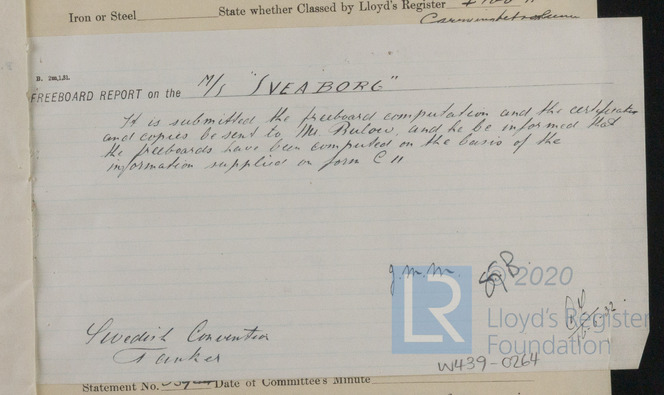 Iron or Steel State whether Classed by Lloyd's Register
Carrying petroleum
FREEBOARD REPORT on the M/S "SVEABORG"
It is submitted the freeboard computation and the certificates
and copies be sent to Mr. Bulow, and he be informed that
the freeboards have been computed on the basis of the
information supplied on form C 11
J.M.M.
© 2020
LR
Lloyd's Register
Foundation
Swedish Convention
Tanker
W439-0264
Statement No. Date of Committee's Minute